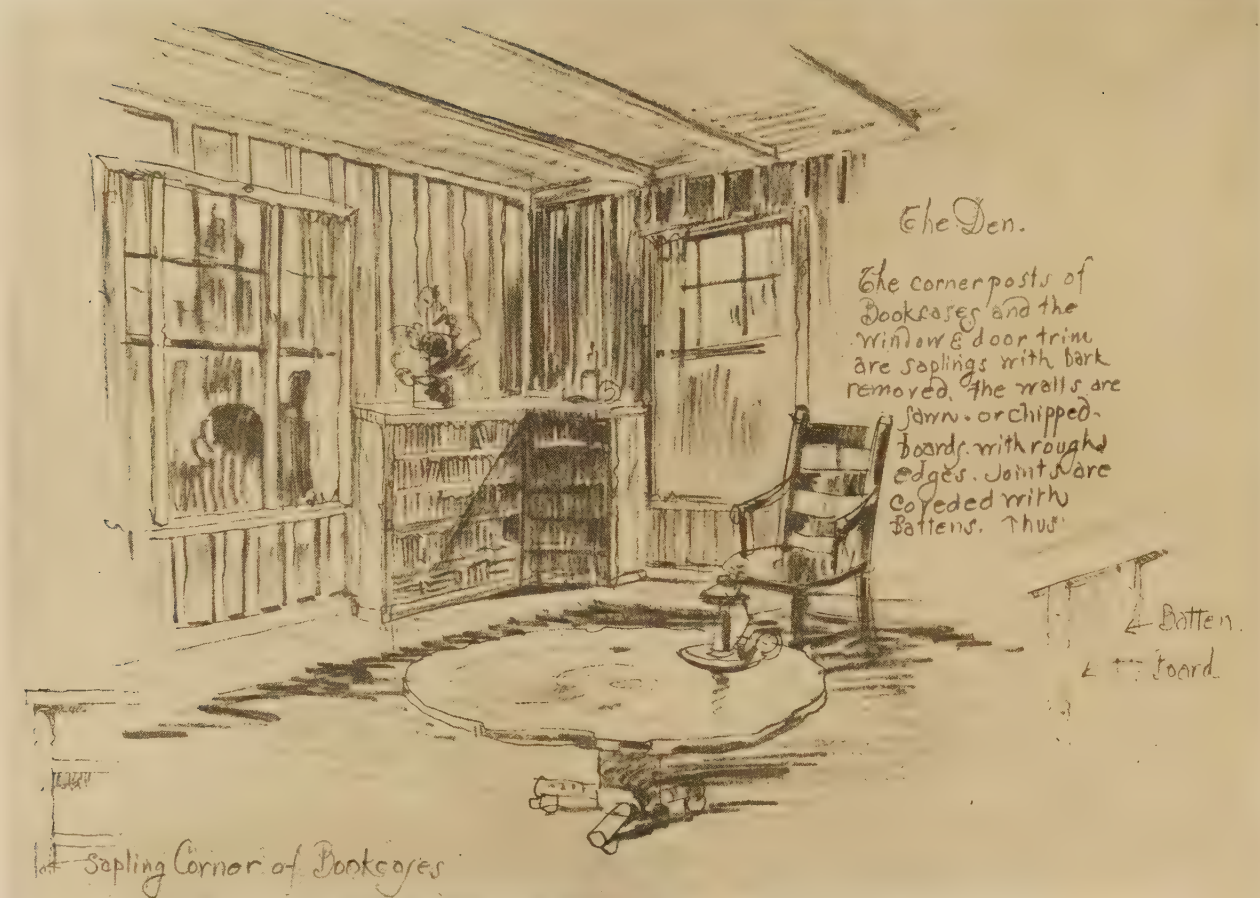 The Den.
The corner posts of
Bookcases and the
window & door trim
are saplings with bark
removed. The walls are
sawn. or chipped.
boards. with rough
edges. Joints are
coveded with
Battens. Thus
Batten.
board
Sapling Corner of Bookcases